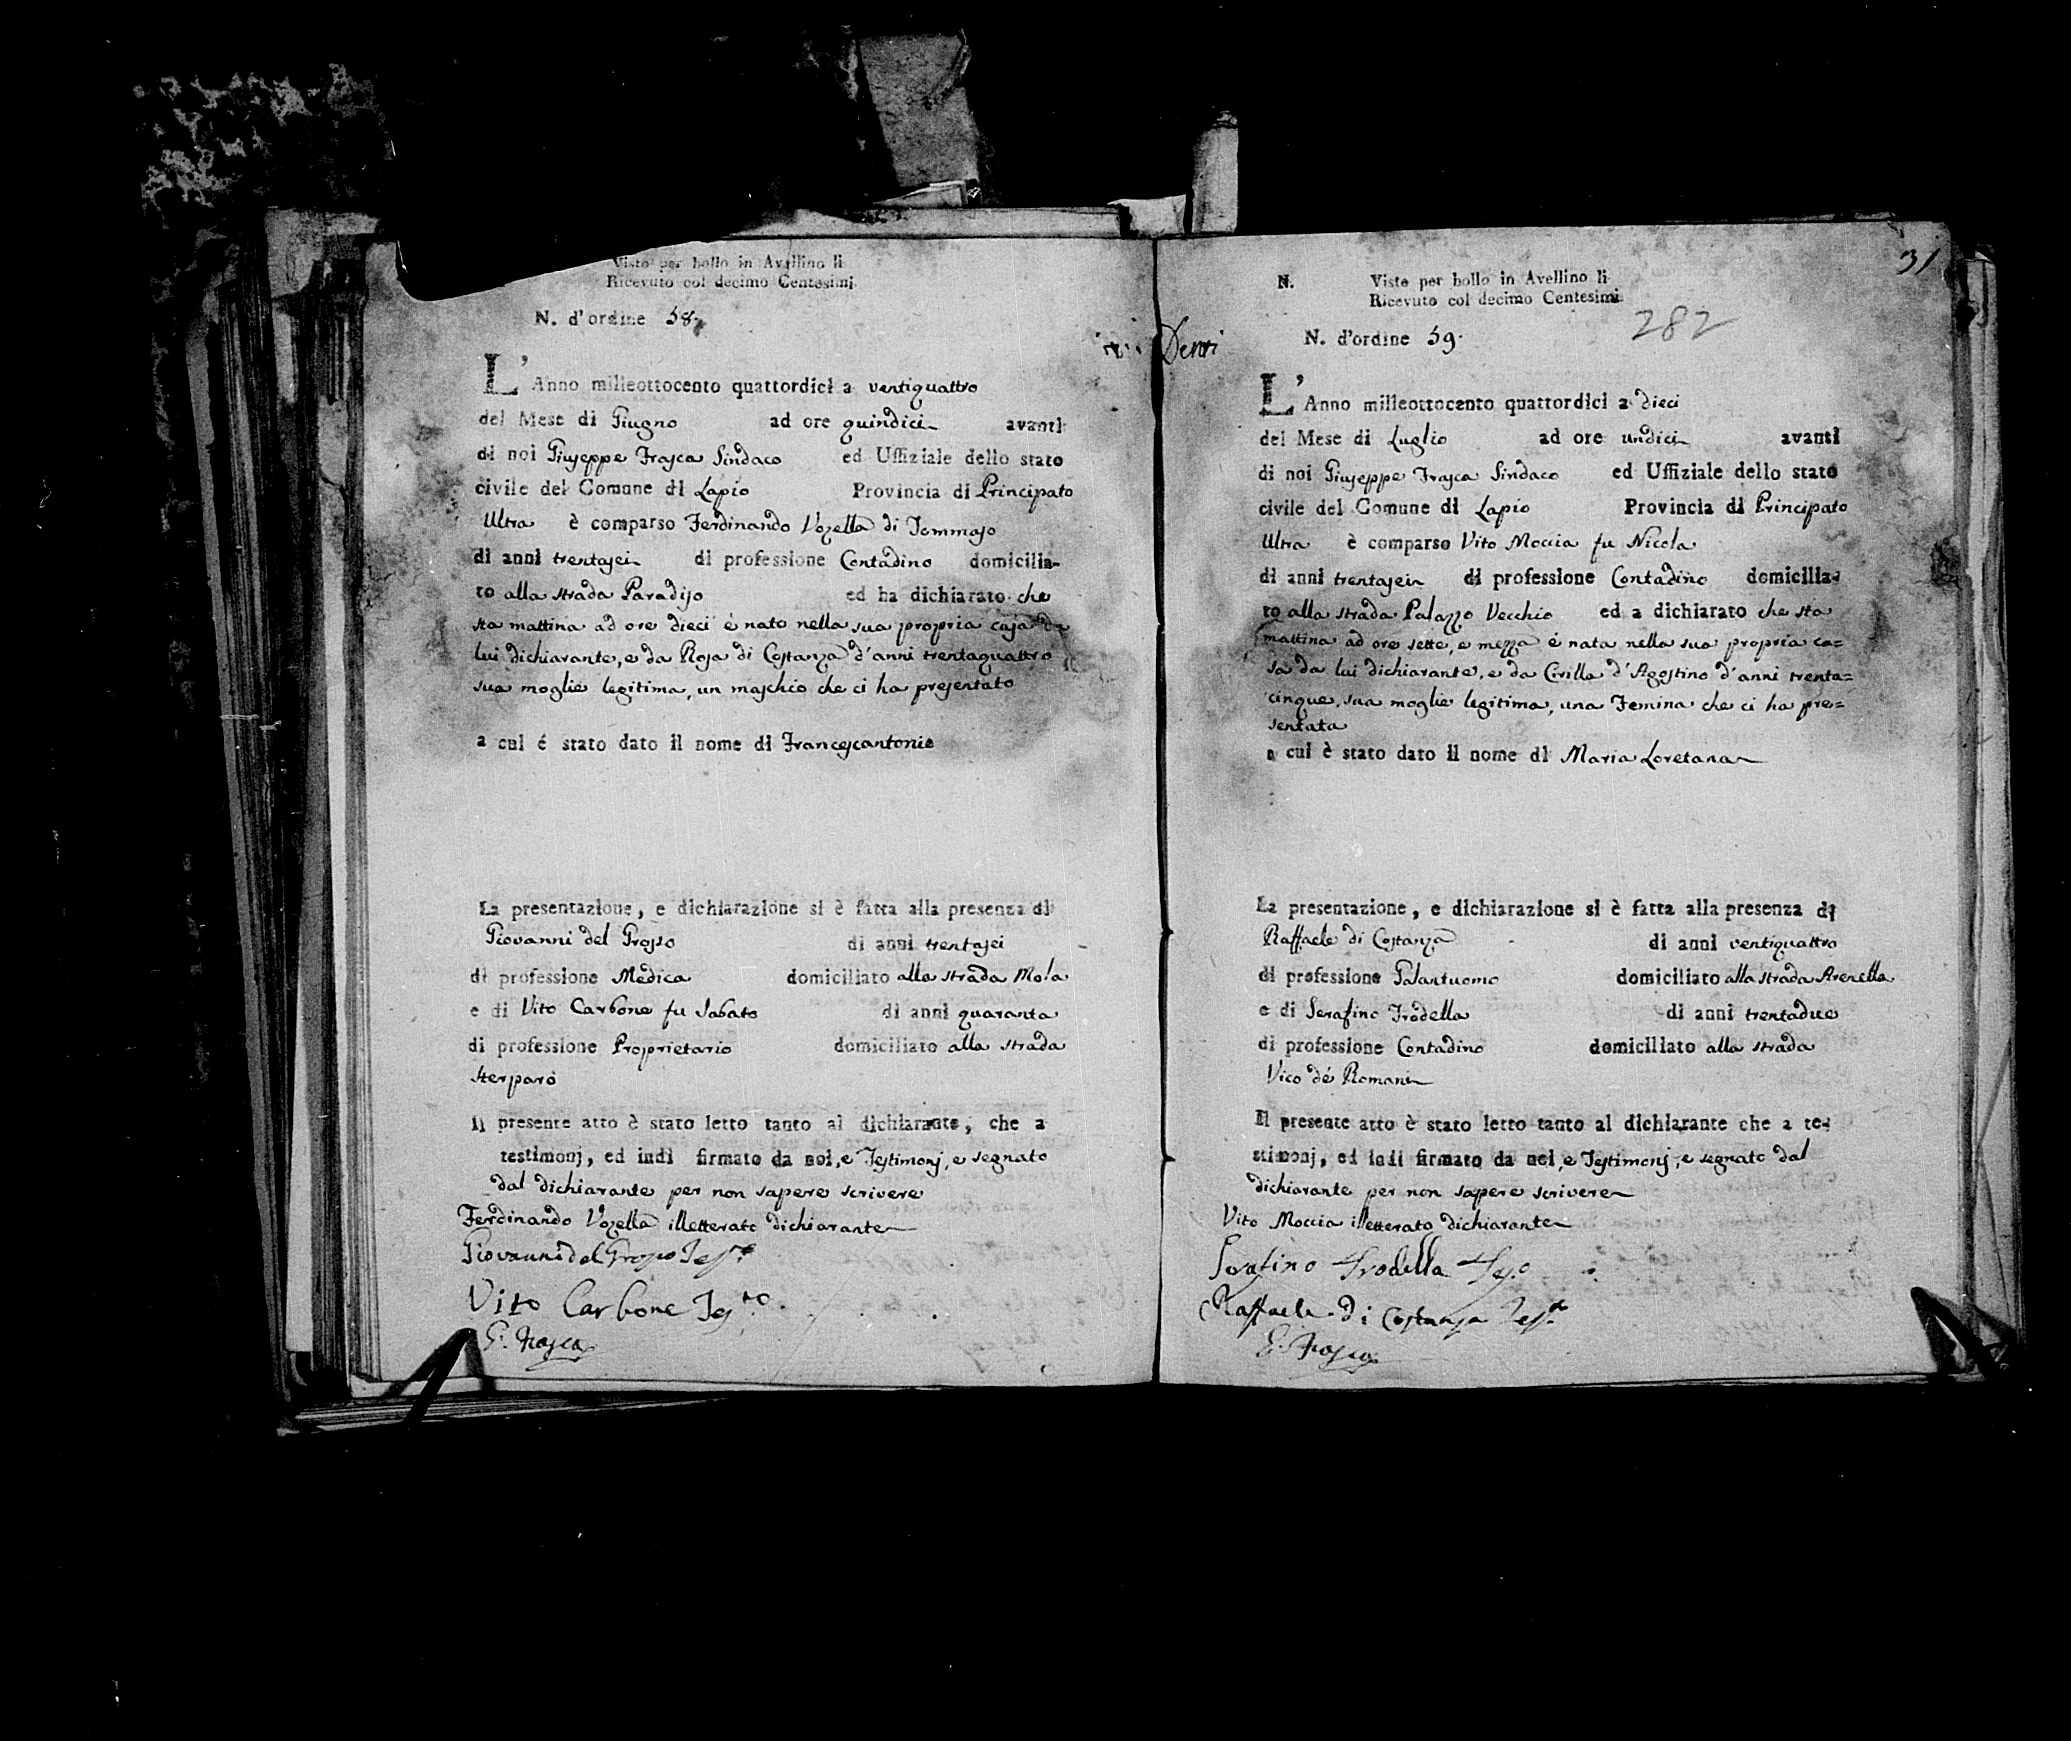 Visto per bollo in Avellino li
Ricevuto col decimo Centesimi
N. d'ordine 58.
L'Anno milleottocento quattordici a ventiquattro
del Mese di Giugno ad ore quindici avanti
di noi Giuseppe Frasca Sindaco ed Uffiziale dello stato
civile del Comune di Lapio Provincia di Principato
Ultra è comparso Ferdinando Vozella di Tommaso
di anni trentasei di professione Contadino domicilia-
to alla strada Paradiso ed ha dichiarato che
sta mattina ad ore dieci è nato nella sua propria casa da
lui dichiarante, e da Rosa di Costanza d'anni trentaquattro
sua moglie legitima, un maschio che ci ha presentato
a cui é stato dato il nome di Francescantonio
La presentazione, e dichiarazione si è fatta alla presenza di
Giovanni del Grosso di anni trentasei
di professione Medica domiciliato alla strada Mola
e di Vito Carbone fu Sabato di anni quaranta
di professione Proprietario domiciliato alla strada
Sterparo
Il presente atto è stato letto tanto al dichiarante, che a
testimonj, ed indi firmato da noi, e Testimonj, e segnato
dal dichiarante per non sapere scrivere
Ferdinando Vozella illetterato dichiarante
Giovanni del Grosso Testo
Vito Carbone Testo.
G. Frasca
31
N. Visto per bollo in Avellino li
Ricevuto col decimo Centesimi
282
N. d'ordine 59.
L'Anno milleottocento quattordici a dieci
del Mese di Luglio ad ore undici avanti
di noi Giuseppe Frasca Sindaco ed Uffiziale dello stato
civile del Comune di Lapio Provincia di Principato
Ultra è comparso Vito Moccia fu Nicola
di anni trentasei di professione Contadino domicilia-
to alla strada Palazzo Vecchio ed a dichiarato che sta
mattina ad ore sette, e mezza è nata nella sua propria ca=
sa da lui dichiarante, e da Civilla d'Agostino d'anni trenta=
cinque, sua moglie legitima, una Femina che ci ha pre=
sentata
a cui è stato dato il nome di Maria Loretana
La presentazione, e dichiarazione si è fatta alla presenza di
Raffaele di Costanza di anni ventiquattro
di professione Galantuomo domiciliato alla strada Arenella
e di Serafino Frodella di anni trentadue
di professione Contadino domiciliato alla strada
Vico dé Romani
Il presente atto è stato letto tanto al dichiarante che a te-
stimonj, ed indi firmato da noi, e Testimonj, e segnato dal
dichiarante per non sapere scrivere
Vito Moccia illetterato dichiarante
Serafino Frodella Teso
Raffaele di Costanza Testo
G. Frasca